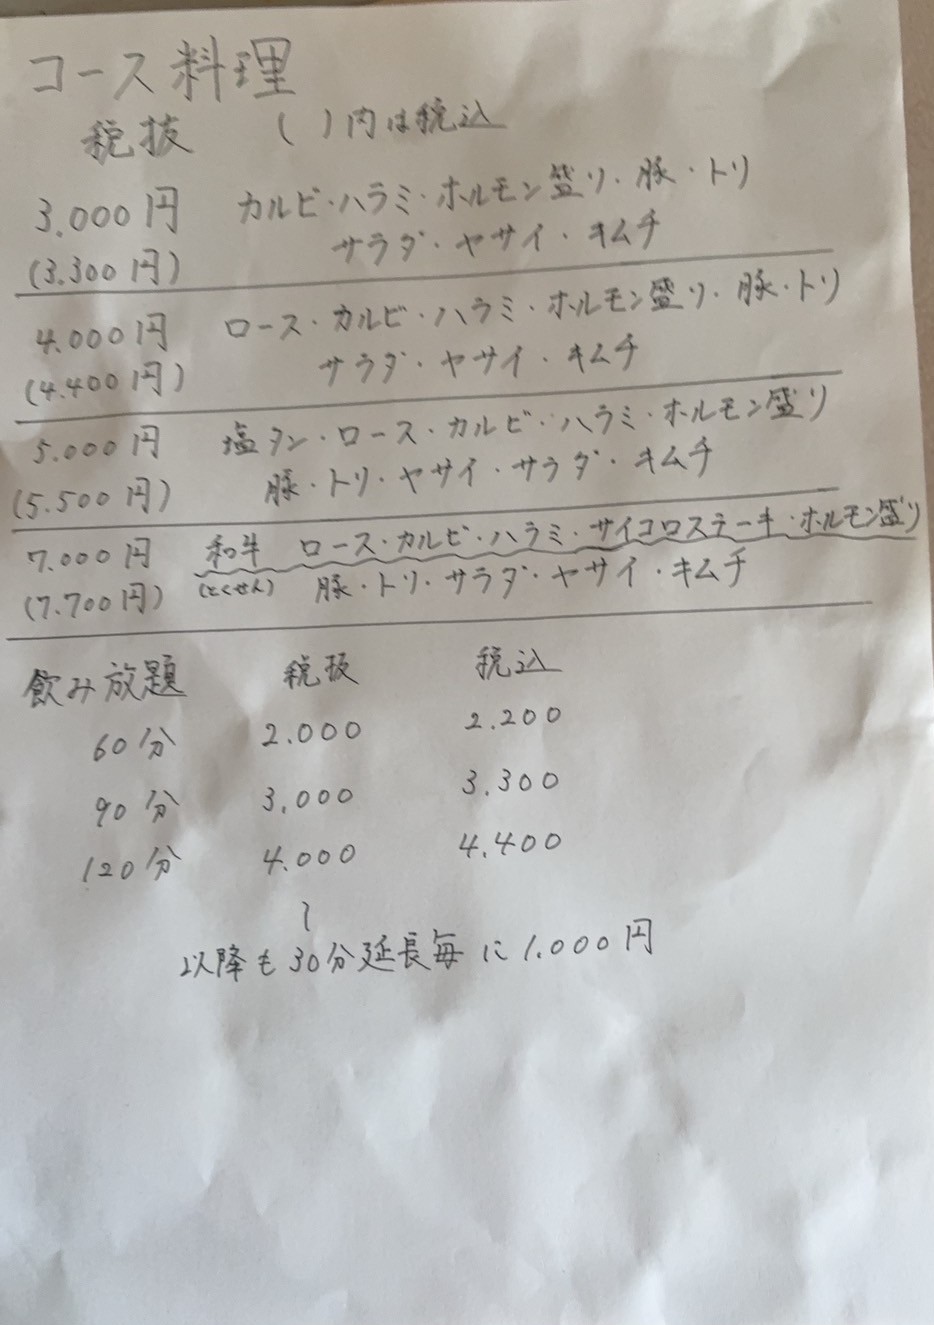 コース料理
税抜 ( )内は税込
3.000円 カルビ・ハラミ・ホルモン盛り・豚・トリ
(3.300円) サラダ・ヤサイ・キムチ
4.000円 ロース・カルビ・ハラミ・ホルモン盛り・豚・トリ
(4.400円) サラダ・ヤサイ・キムチ
5.000円 塩タン・ロース・カルビ・ハラミ・ホルモン盛り
(5.500円) 豚・トリ・ヤサイ・サラダ・キムチ
7.000円 和牛 ロース・カルビ・ハラミ・サイコロステーキ・ホルモン盛り
(7.700円) (とくせん) 豚・トリ・サラダ・ヤサイ・キムチ
飲み放題 税抜 税込
60分 2.000 2.200
90分 3.000 3.300
120分 4.000 4.400
〜
以降も30分延長毎に1.000円